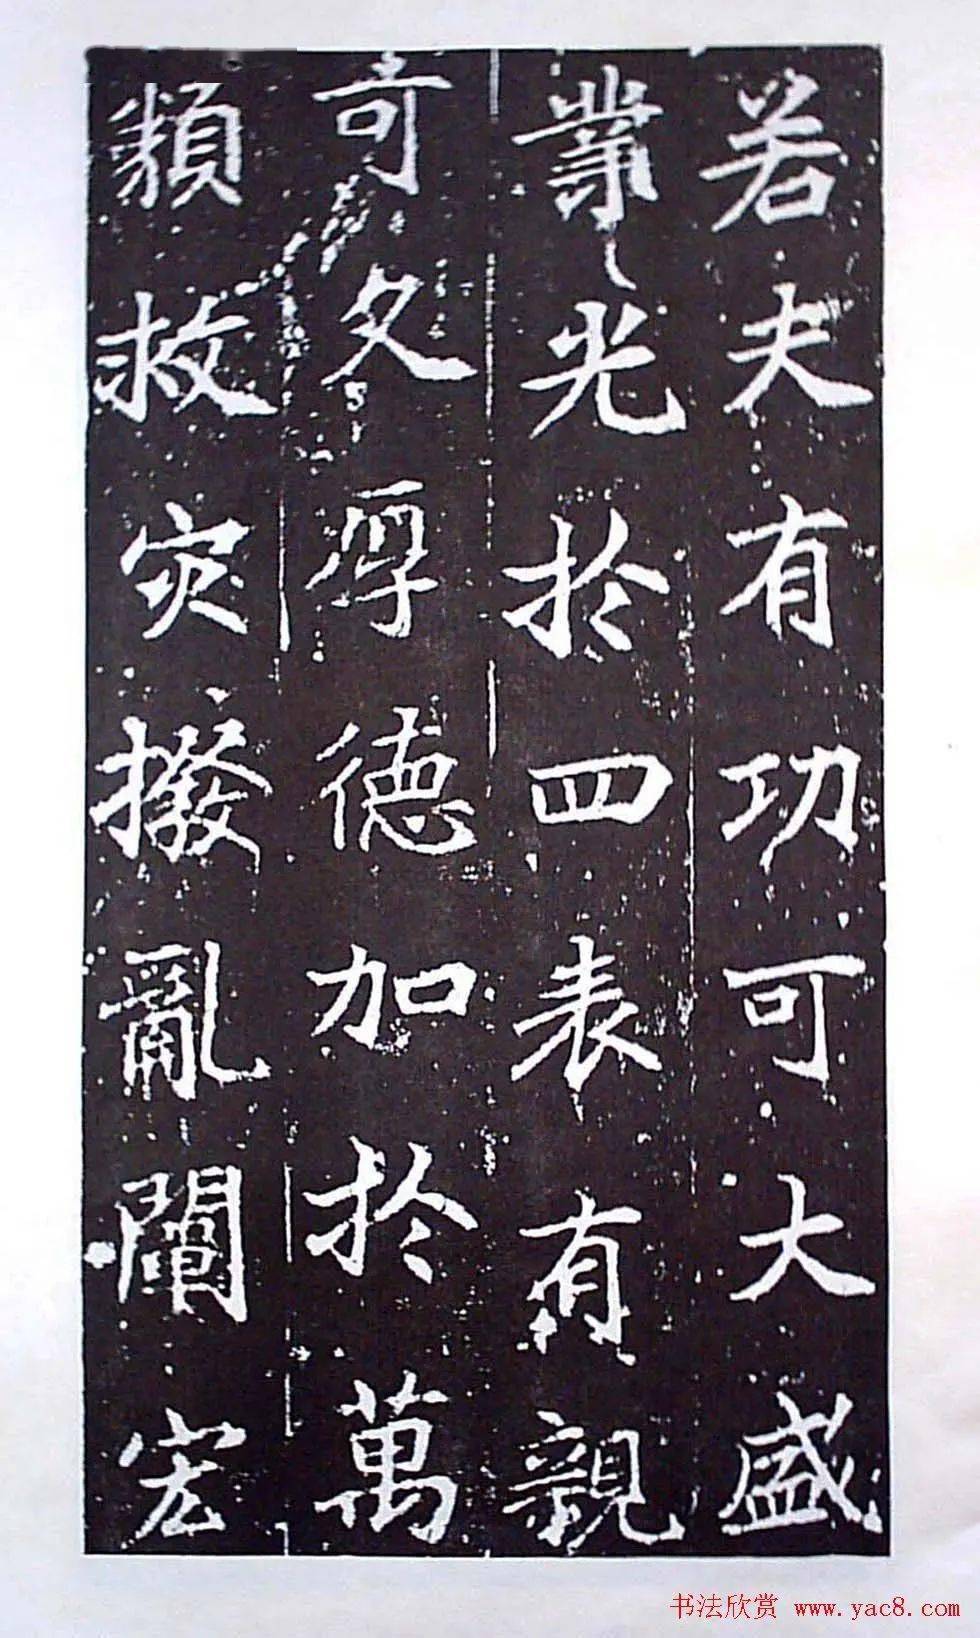 若夫有功可大盛
業光於四表有親
可久厚德加於萬
類救灾撥亂闡宏
书法欣赏 www.yac8.com